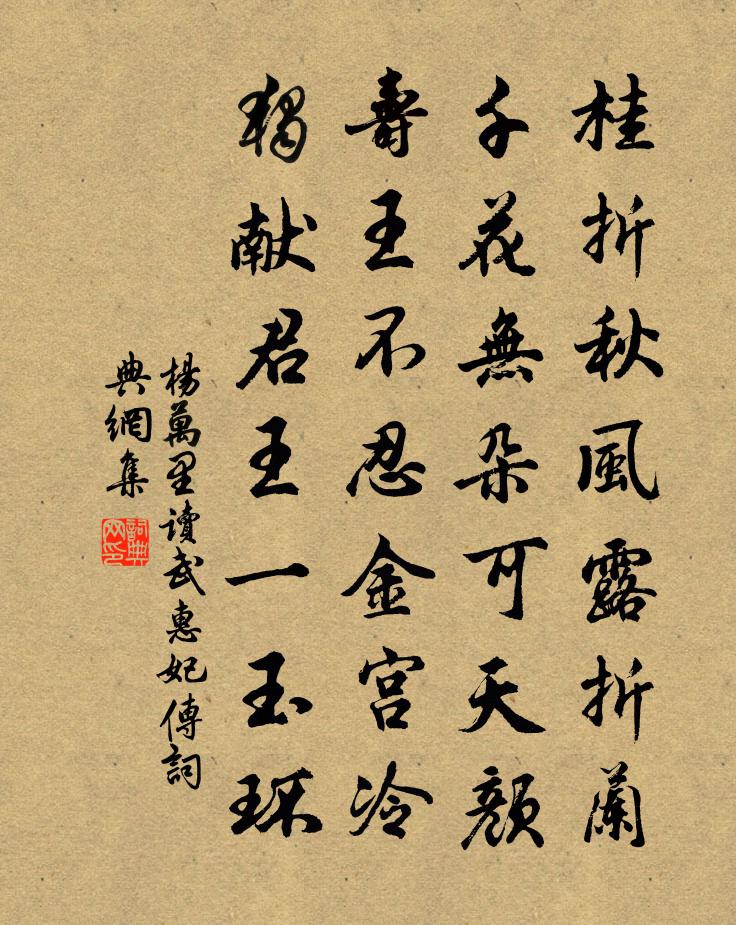 桂折秋風露折蘭
千花無朵可天顏
壽王不忍金宮冷
獨献君王一玉环
楊萬里讀武惠妃傳詞
典網集
詞典
网印